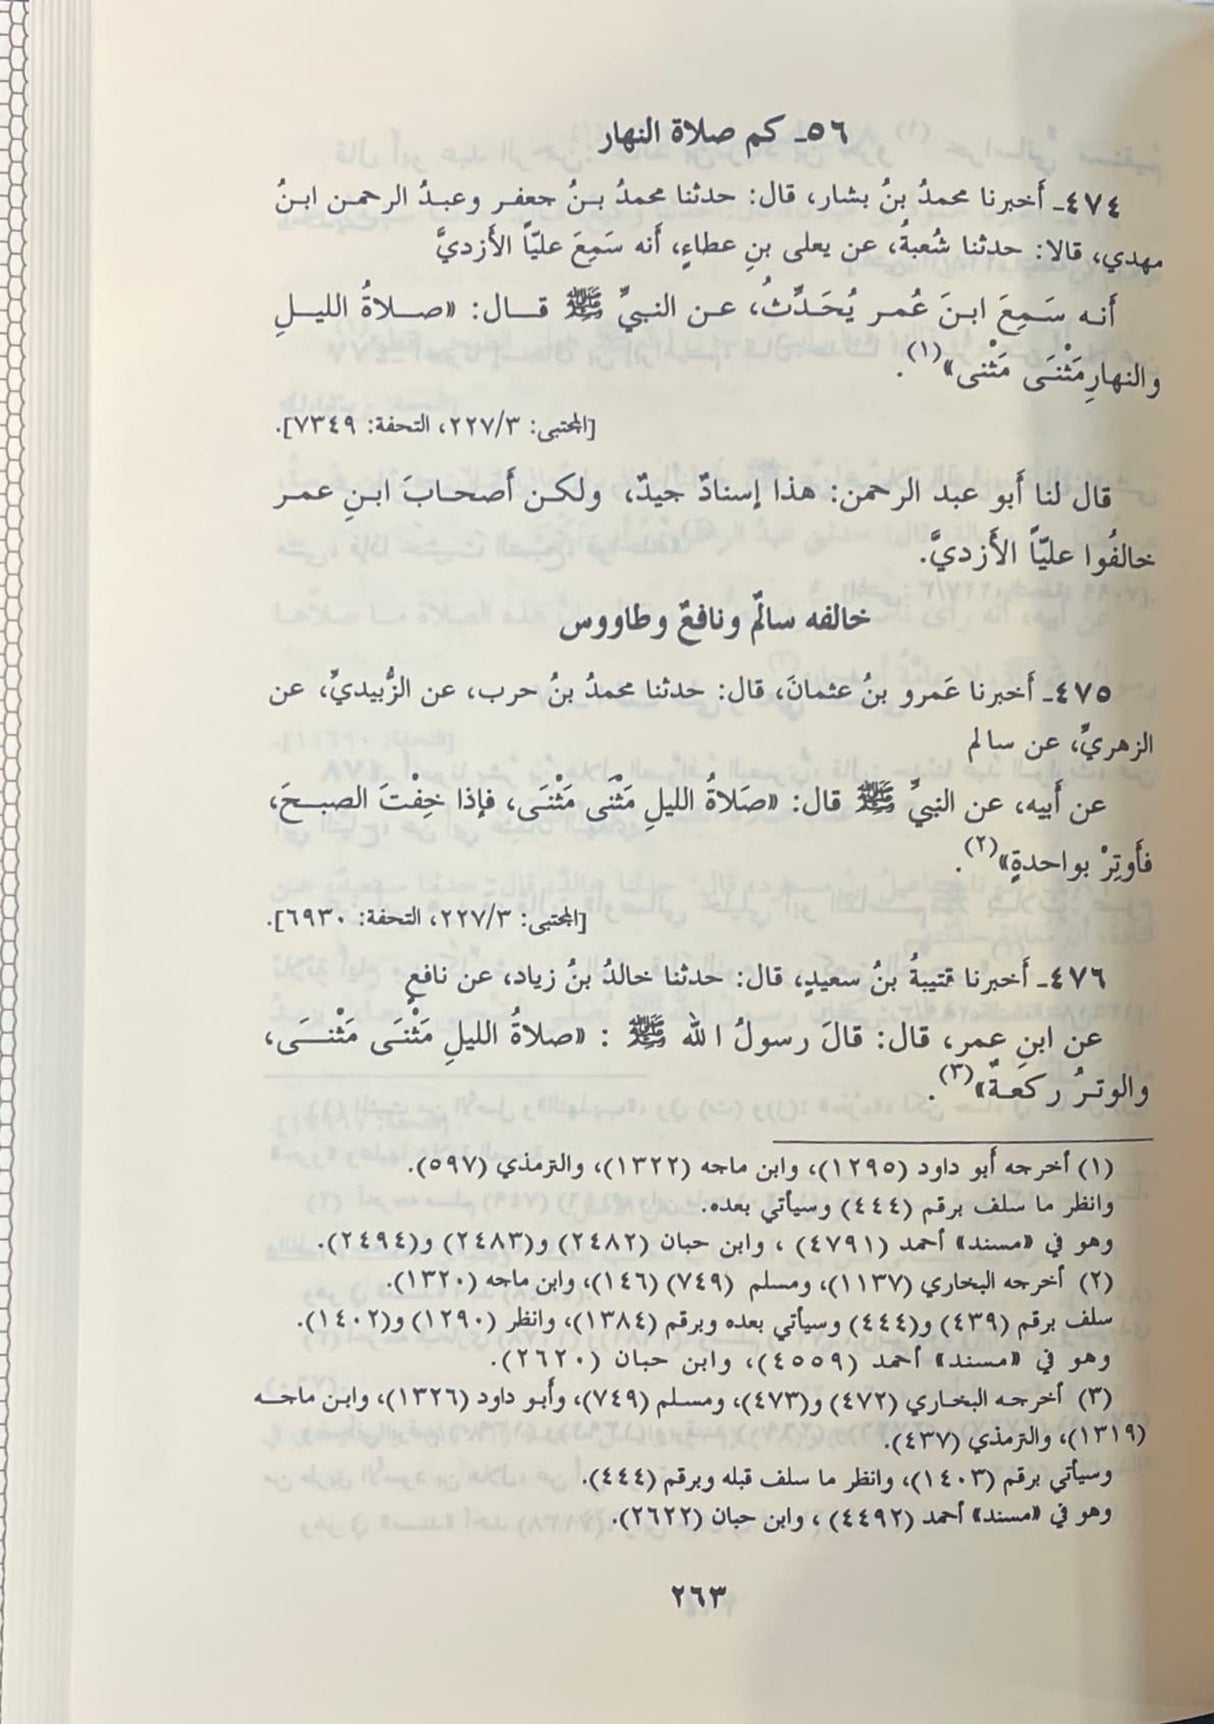 ٥٦ـ كم صلاة النهار
٤٧٤ـ أَخبرنا محمدُ بنُ بشار، قال: حدثنا محمدُ بـنُ جعفر وعبـدُ الرحمـن ابـنُ
مهدي، قالا: حدثنا شُعبةُ، عن يعلى بنِ عطاءٍ، أَنه سَمِعَ عليّاً الأَزديَّ
أَنـه سَـمِعَ ابـنَ عُمـر يُحَـدِّثُ، عـن النبيِّ ﷺ قـال: «صـلاةُ الليـلِ
والنهارِ مَثْنَـى مَثْنى»(١).
[المجتبى: ٢٢٧/٣، التحفة: ٧٣٤٩].
قال لنا أَبو عبد الرحمن: هذا إسنادٌ جيدٌ، ولكـن أَصحـابَ ابـنِ عمـر
خالفُوا عليّاً الأَزديَّ.
خالفه سالمٌ ونافعٌ وطاووس
٤٧٥ـ أَخبرنا عَمرو بنُ عثمانَ، قال: حدثنا محمدُ بنُ حرب، عن الزُّبيديِّ، عن
الزهريِّ، عن سالم
عن أَبيه، عن النبيِّ ﷺ قال: «صَلاةُ الليلِ مَثْنَى مَثْنَـى، فإذا خِفْتَ الصبـحَ،
فأَوتِرْ بواحدةٍ»(٢).
[المجتبى: ٢٢٧/٣، التحفة: ٦٩٣٠].
٤٧٦ـ أَخبرنا قتيبةُ بنُ سعيدٍ، قال: حدثنا خالدُ بنُ زياد، عن نافعٍ
عن ابنِ عمر، قال: قالَ رسولُ الله ﷺ : «صلاةُ الليلِ مَثْنَـى مَثْنـَى،
والوتـرُ ركعـةٌ»(٣).
(١) أخرجه أَبو داود (١٢٩٥)، وابن ماجه (١٣٢٢)، والترمذي (٥٩٧).
وانظر ما سلف برقم (٤٤٤) وسيأتي بعده.
وهو في «مسند» أحمد (٤٧٩١) ، وابن حبان (٢٤٨٢) و(٢٤٨٣) و(٢٤٩٤).
(٢) أخرجه البخاري (١١٣٧)، ومسلم (٧٤٩) (١٤٦)، وابن ماجه (١٣٢٠).
سلف برقم (٤٣٩) و(٤٤٤) وسيأتي بعده وبرقم (١٣٨٤)، وانظر (١٢٩٠) و(١٤٠٢).
وهو في «مسند» أحمد (٤٥٥٩)، وابن حبان (٢٦٢٠).
(٣) أخرجـه البخـاري (٤٧٢) و(٤٧٣)، ومسلم (٧٤٩)، وأَبـو داود (١٣٢٦)، وابـن ماجـه
(١٣١٩)، والترمذي (٤٣٧).
وسيأتي برقم (١٤٠٣)، وانظر ما سلف قبله وبرقم (٤٤٤).
وهو في «مسند» أحمد (٤٤٩٢) ، وابن حبان (٢٦٢٢).
٢٦٣